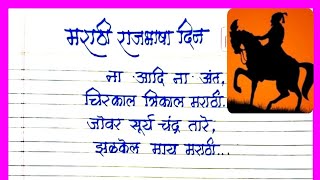 मराठी राजभाषा दिन
ना आदि ना अंत,
चिरकाल त्रिकाल मराठी.
जोवर सूर्य चंद्र तारे,
झळकेल माय मराठी...